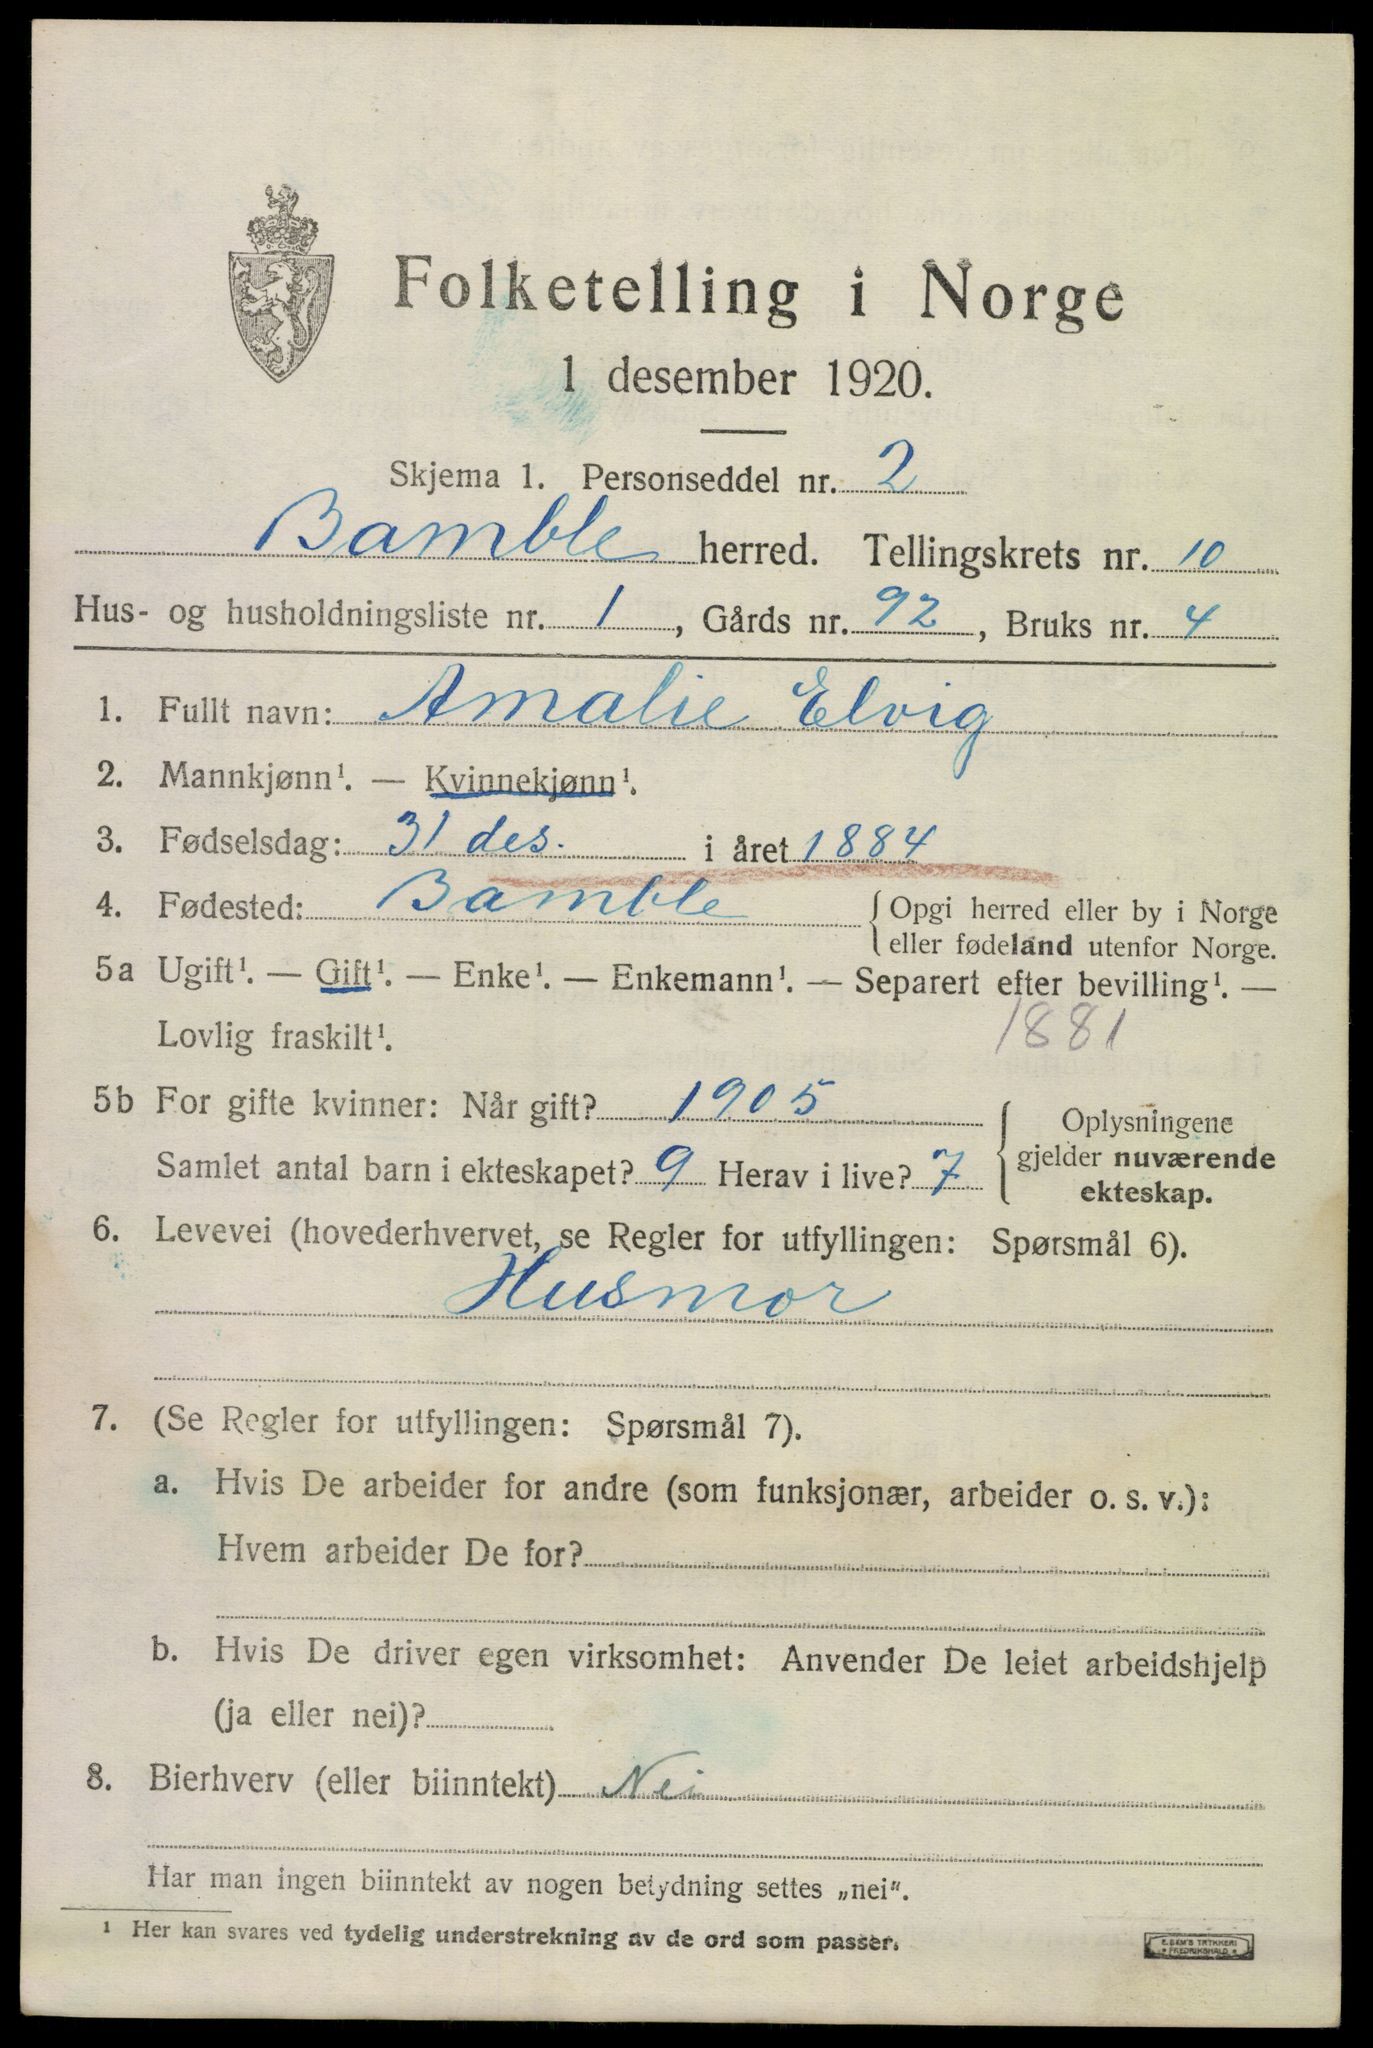 Folketelling i Norge
1 desember 1920.
Skjema 1. Personseddel nr. 2
Bamble herred. Tellingskrets nr. 10
Hus- og husholdningsliste nr. 1, Gårds nr. 92, Bruks nr. 4
1. Fullt navn: Amalie Elvig
2. Mannkjønn¹. — Kvinnekjønn¹.
3. Fødselsdag: 31 des. i året 1884
4. Fødested: Bamble { Opgi herred eller by i Norge
eller fødeland utenfor Norge.
5a Ugift¹. — Gift¹. — Enke¹. — Enkemann¹. — Separert efter bevilling¹. —
Lovlig fraskilt¹. 1881
5b For gifte kvinner: Når gift? 1905 { Oplysningene
Samlet antal barn i ekteskapet? 9 Herav i live? 7 gjelder nuværende
ekteskap.
6. Levevei (hovederhvervet, se Regler for utfyllingen: Spørsmål 6).
Husmor
7. (Se Regler for utfyllingen: Spørsmål 7).
a. Hvis De arbeider for andre (som funksjonær, arbeider o. s. v.):
Hvem arbeider De for?
b. Hvis De driver egen virksomhet: Anvender De leiet arbeidshjelp
(ja eller nei)?
8. Bierhverv (eller biinntekt) Nei
Har man ingen biinntekt av nogen betydning settes „nei".
¹ Her kan svares ved tydelig understrekning av de ord som passer.
E. SEM'S TRYKKERI
FREDRIKSHALD